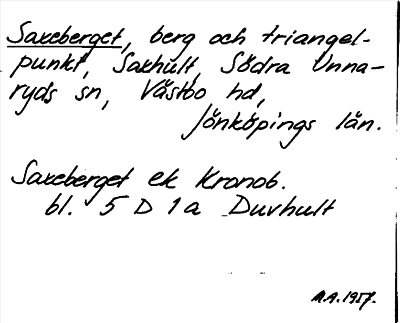 Saxeberget, berg och triangel-
punkt, Saxhult, Södra Unna-
ryds sn, Västbo hd,
Jönköpings län.
Saxeberget ek Kronob.
bl. 5 D 1 a Duvhult
M.A. 1957.